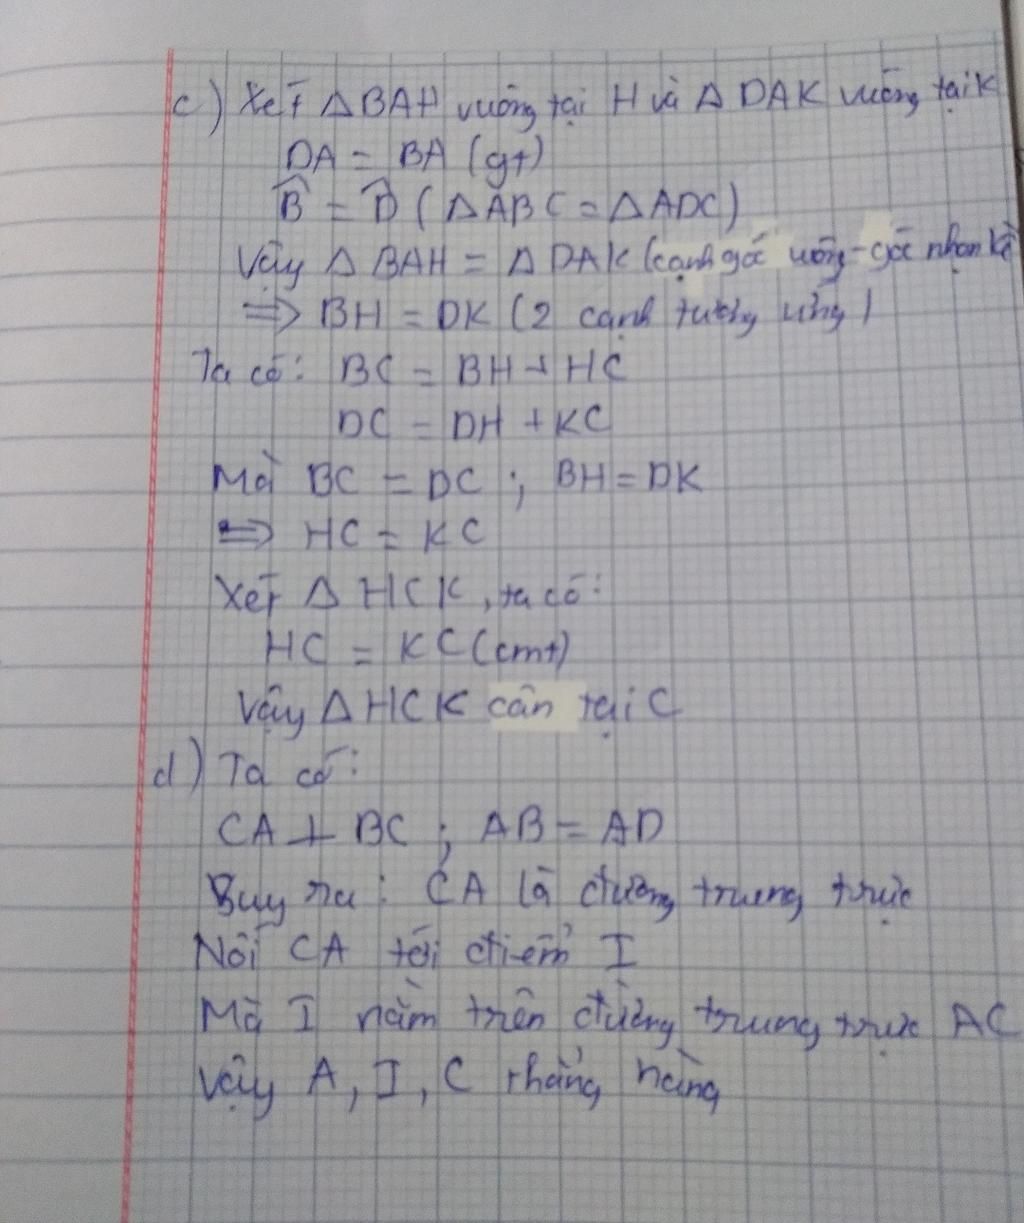 c) Xét △BAH vuông tại H và △DAK vuông tại K
DA = BA (gt)
B̂ = D̂ (△ABC = △ADC)
Vậy △BAH = △DAK (cạnh góc uông - góc nhọn kề
⇒ BH = DK (2 cạnh tương ứng)
Ta có: BC = BH + HC
DC = DH + KC
Mà BC = DC ; BH = DK
⇒ HC = KC
Xét △HCK, ta có:
HC = KC (cmt)
Vậy △HCK cân tại C
d) Ta có:
CA ⊥ BC ; AB = AD
Suy ra: CA là đường trung trực
Nối CA tới điểm I
Mà I nằm trên đường trung trực AC
Vậy A, I, C thẳng hàng